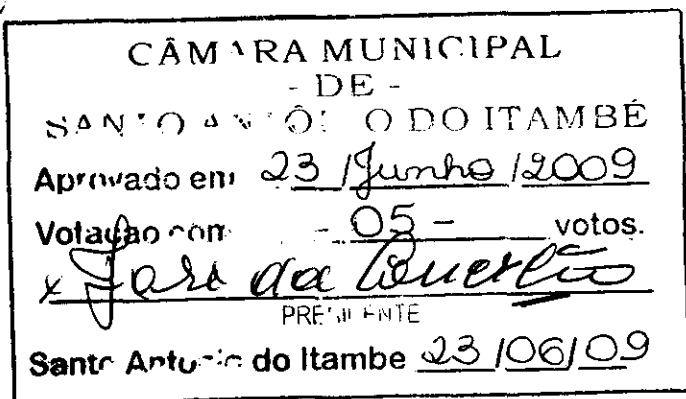 CÂMARA MUNICIPAL
- DE -
SANTO ANTÔNIO DO ITAMBÉ
Aprovado em 23 / Junho / 2009
Votação com - 05 - votos.
x José da
PRESIDENTE
Santo Antonio do Itambe 23 / 06 / 09